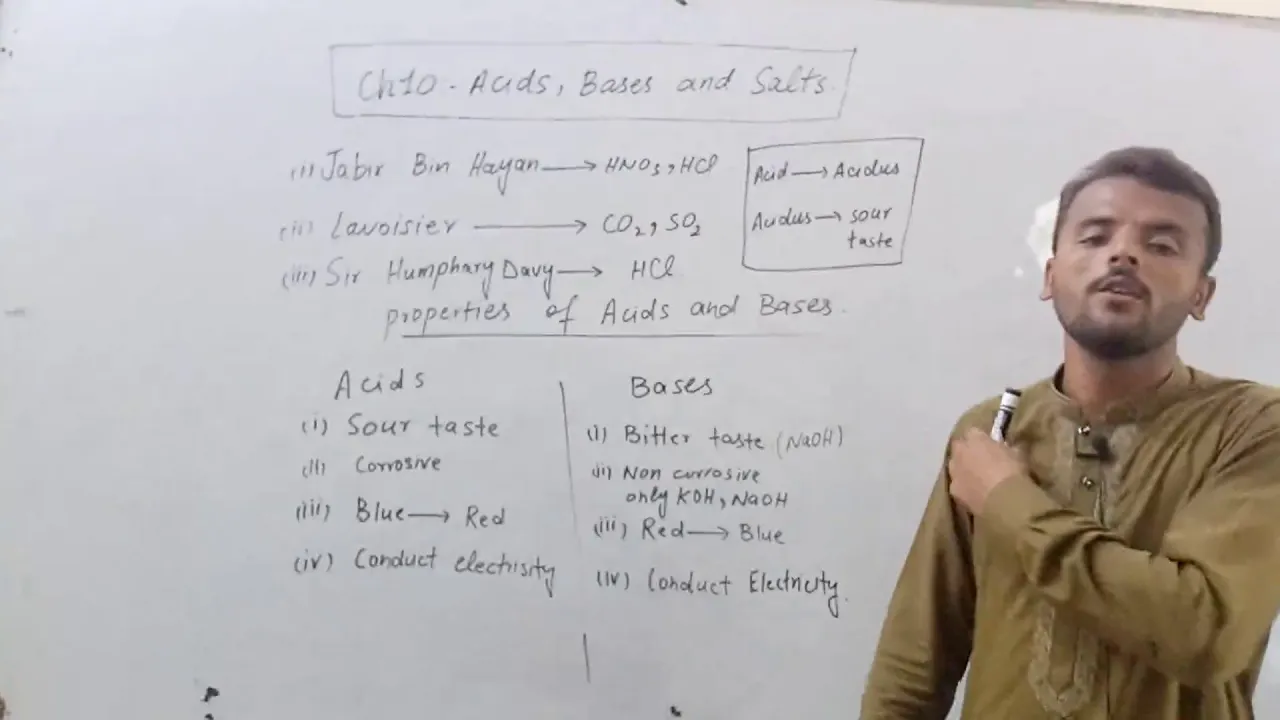 Ch10 - Acids, Bases and Salts.
(i) Jabir Bin Hayan → HNO3, HCl
(ii) Lavoisier → CO2, SO2
(iii) Sir Humphary Davy → HCl
Acid → Acidus
Acidus → sour
taste
properties of Acids and Bases.
Acids
(i) Sour taste
(ii) Corrosive
(iii) Blue → Red
(iv) Conduct electrisity
Bases
(i) Bitter taste (NaOH)
(ii) Non corrosive
only KOH, NaOH
(iii) Red → Blue
(iv) Conduct Electricity.